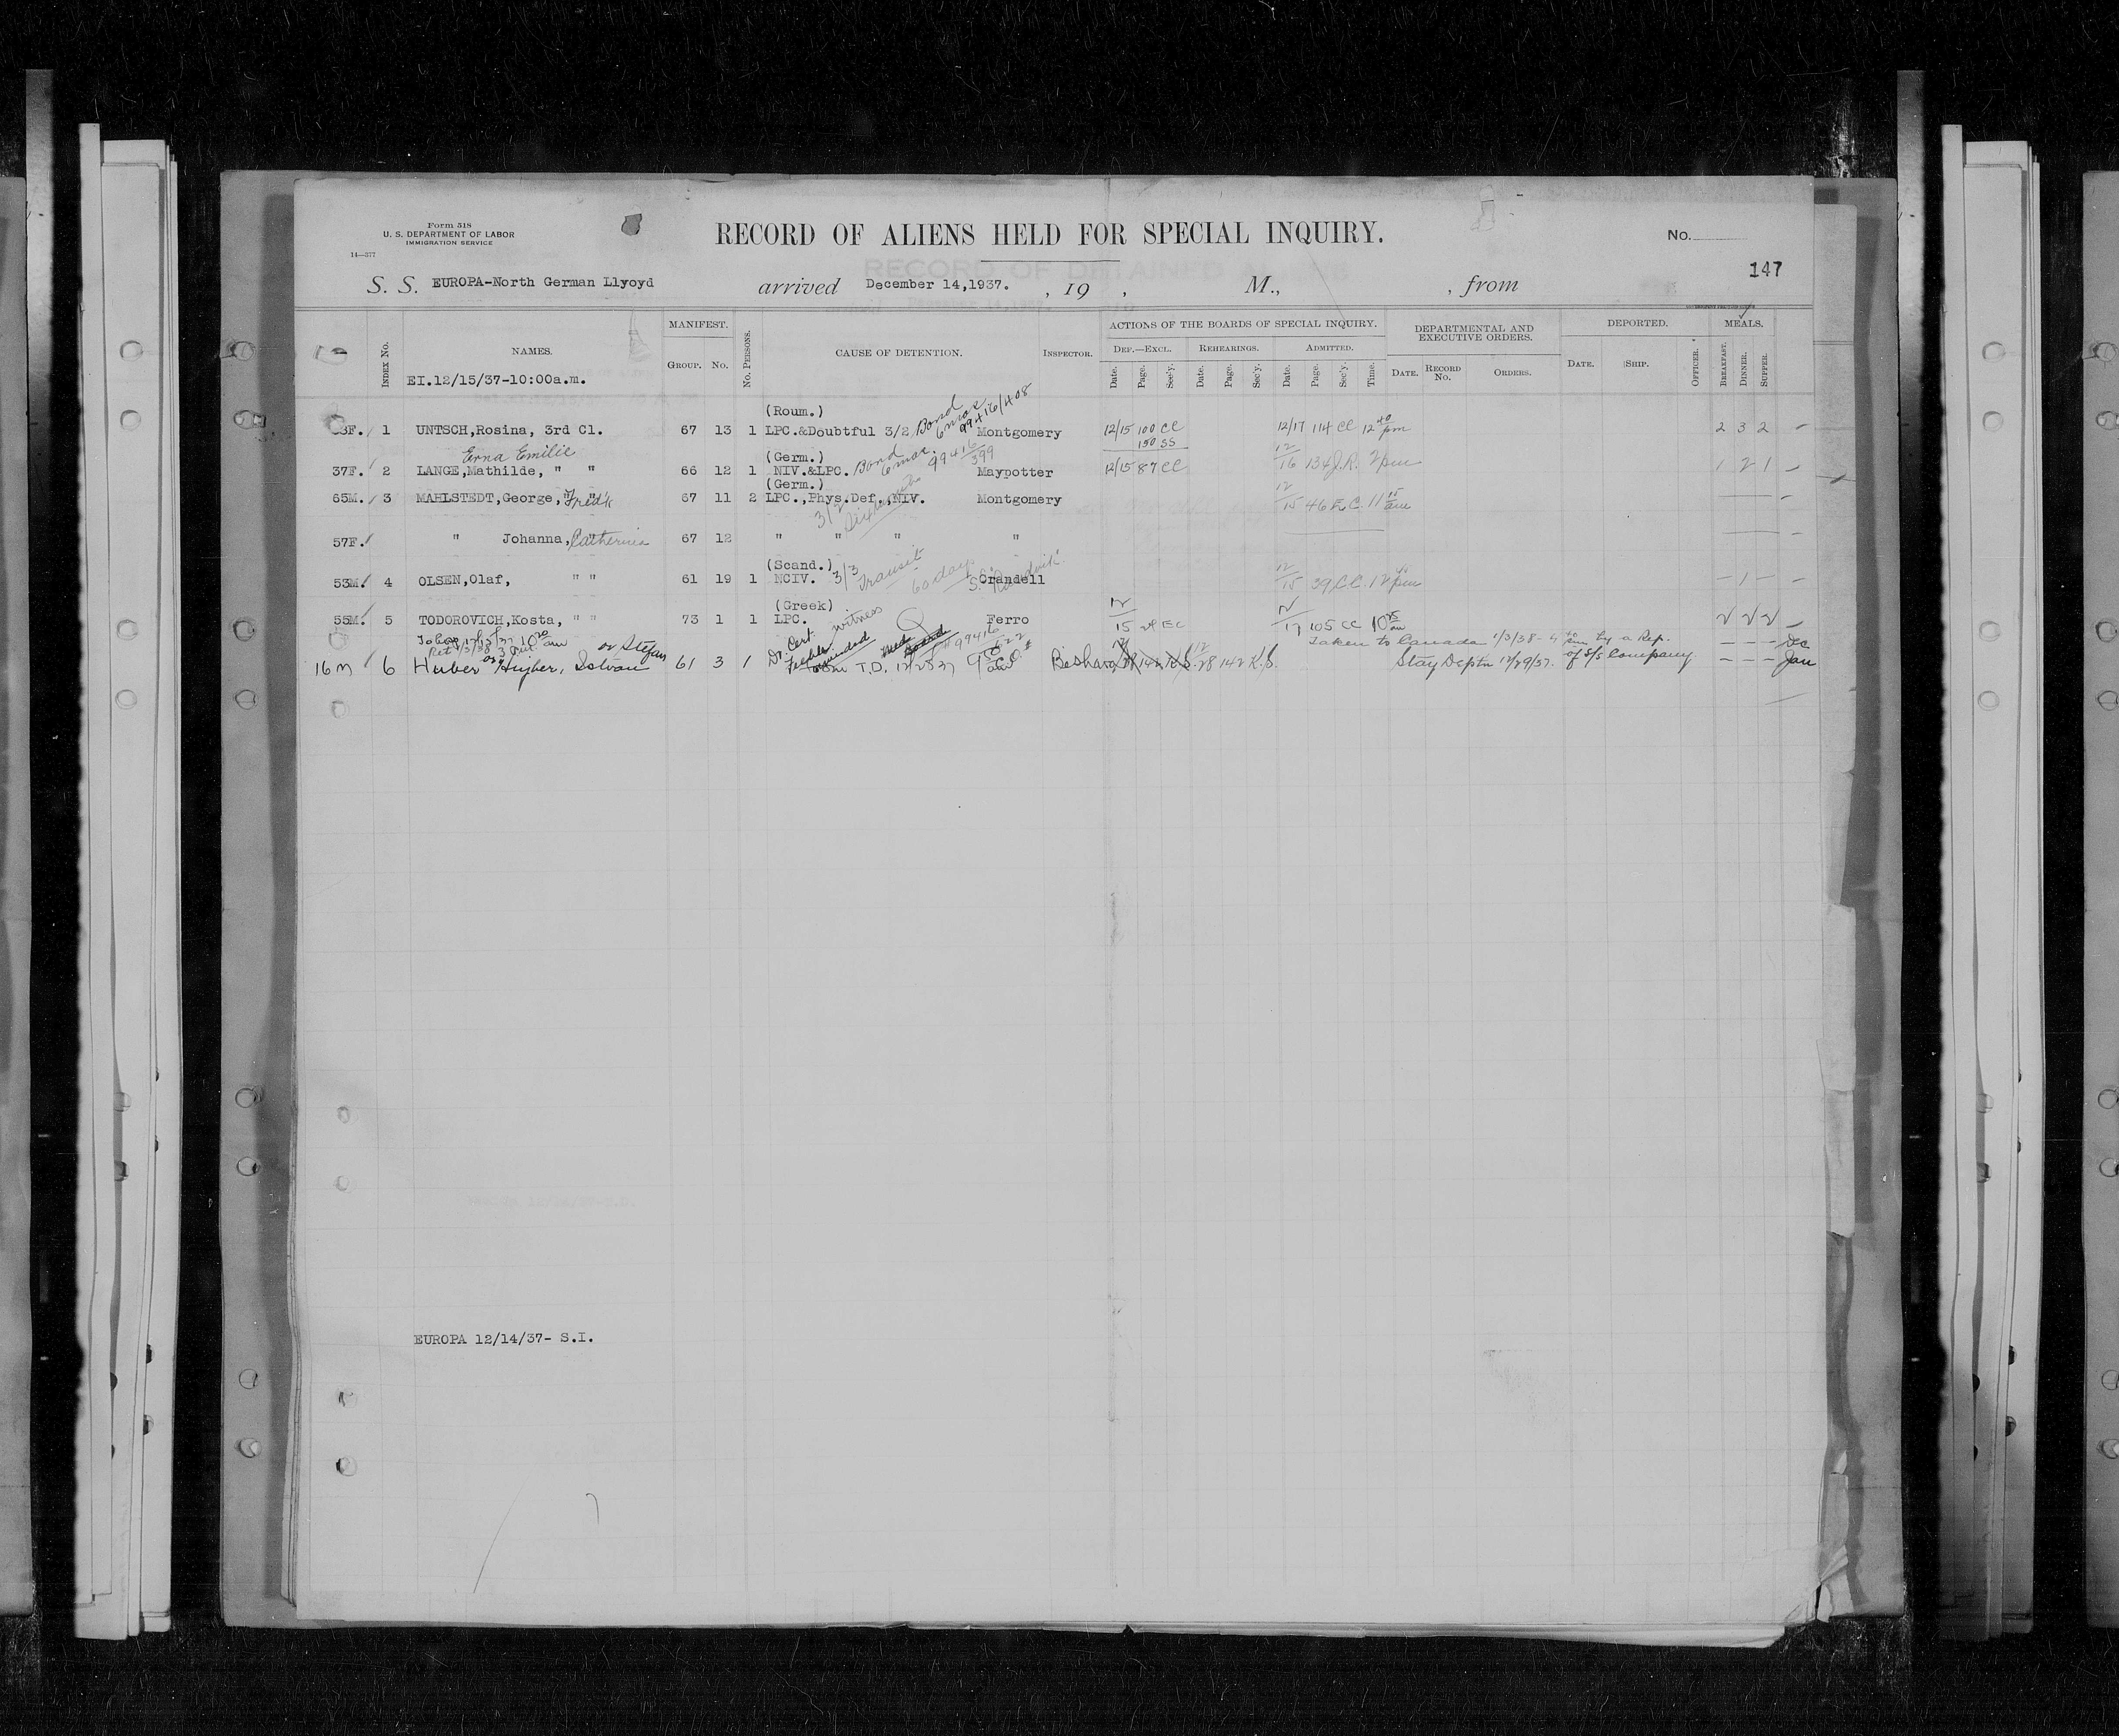 Form 518
U. S. DEPARTMENT OF LABOR
IMMIGRATION SERVICE
14—377
RECORD OF ALIENS HELD FOR SPECIAL INQUIRY.
No.
147
S. S. EUROPA-North German Llyoyd arrived December 14,1937. , 19 , M., , from
INDEX No. NAMES. MANIFEST. No. PERSONS. CAUSE OF DETENTION. INSPECTOR. ACTIONS OF THE BOARDS OF SPECIAL INQUIRY. DEPARTMENTAL AND EXECUTIVE ORDERS. DEPORTED. MEALS.
GROUP. No. DEF.—EXCL. REHEARINGS. ADMITTED.
Date. Page. Sec'y. Date. Page. Sec'y. Date. Page. Sec'y. Time. DATE. RECORD No. ORDERS. DATE. SHIP. OFFICER. BREAKFAST. DINNER. SUPPER.
EI.12/15/37-10:00a.m.
(Roum.) Bond 6 mos 99416/408
F. 1 UNTSCH,Rosina, 3rd Cl. 67 13 1 LPC.&Doubtful 3/2 Montgomery 12/15 100 CC 12/17 114 CC 12 40 pm 2 3 2 –
150 SS
Erna Emilie (Germ.) Bond 6 mos. 99416/399
37F. 2 LANGE,Mathilde, " " 66 12 1 NIV.&LPC. Maypotter 12/15 87 CC 12/16 134 J.R. 2 pm 1 2 1 –
(Germ.)
65M. 3 MAHLSTEDT,George, " " Fred'k 67 11 2 LPC.,Phys.Def.,NIV. Montgomery 12/15 46 E.C. 11 15 am –
3/2
57F. " Johanna, " Catherina 67 12 " " " " –
(Scand.) 3/3 Transit 60 days
53M. 4 OLSEN,Olaf, " " 61 19 1 NCIV. Crandell 12/15 39 CC 12 pm – 1 – –
(Greek) witness
55M. 5 TODOROVICH,Kosta, " " 73 1 1 LPC. Ferro 12/15 EC 12/17 105 CC 10 25 am 2 2 2 –
Dr. Cert. 99416 Taken to Canada 1/3/38- 4 pm by a Rep. – – – Dec
or Stefan
16 M 6 Huber or Hujber, Istvan 61 3 1 T.D. 12/28/37 9 am Beshara 28 142 K.S. Stay Deptn 12/29/37. of S/S Company – – – Jan
EUROPA 12/14/37- S.I.